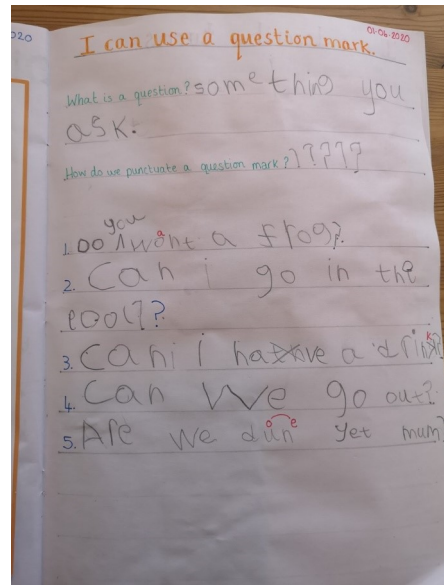 020
01-06-2020
I can use a question mark.
What is a question? something you
ask.
How do we punctuate a question mark? ?????
you
1. DO ^ want a frog?
2. Can i go in the
pool??
3. Can i i have a drink?
4. Can we go out?
5. Are we dun yet mum?